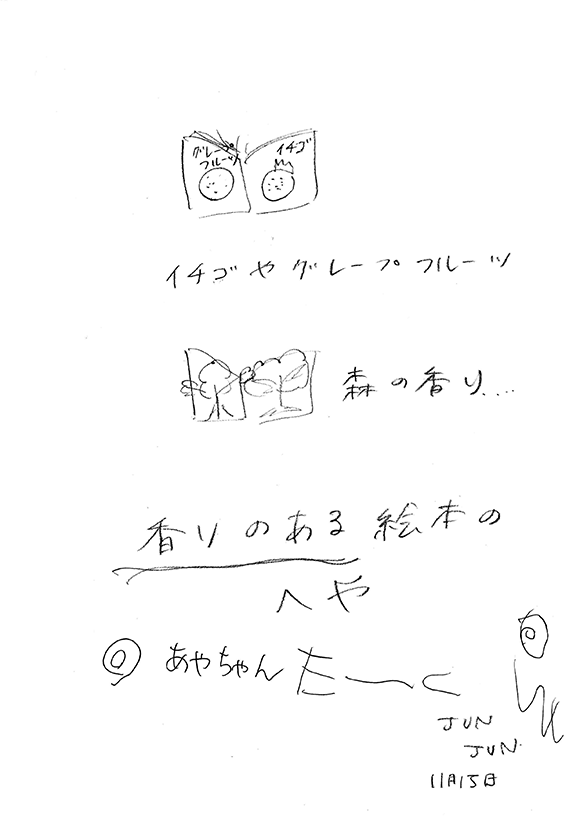 グレープ
フルーツ
イチゴ
イチゴやグレープフルーツ
森の香り....
香りのある絵本の
へや
あやちゃん
JUN
JUN.
11月15日